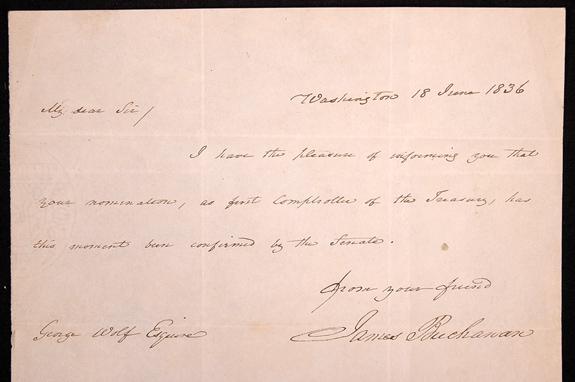 Washington 18 June 1836
My dear Sir/
I have the pleasure of informing you that
your nomination, as first Comptroller of the Treasury, has
this moment been confirmed by the Senate.
from your friend
George Wolf Esquire James Buchanan